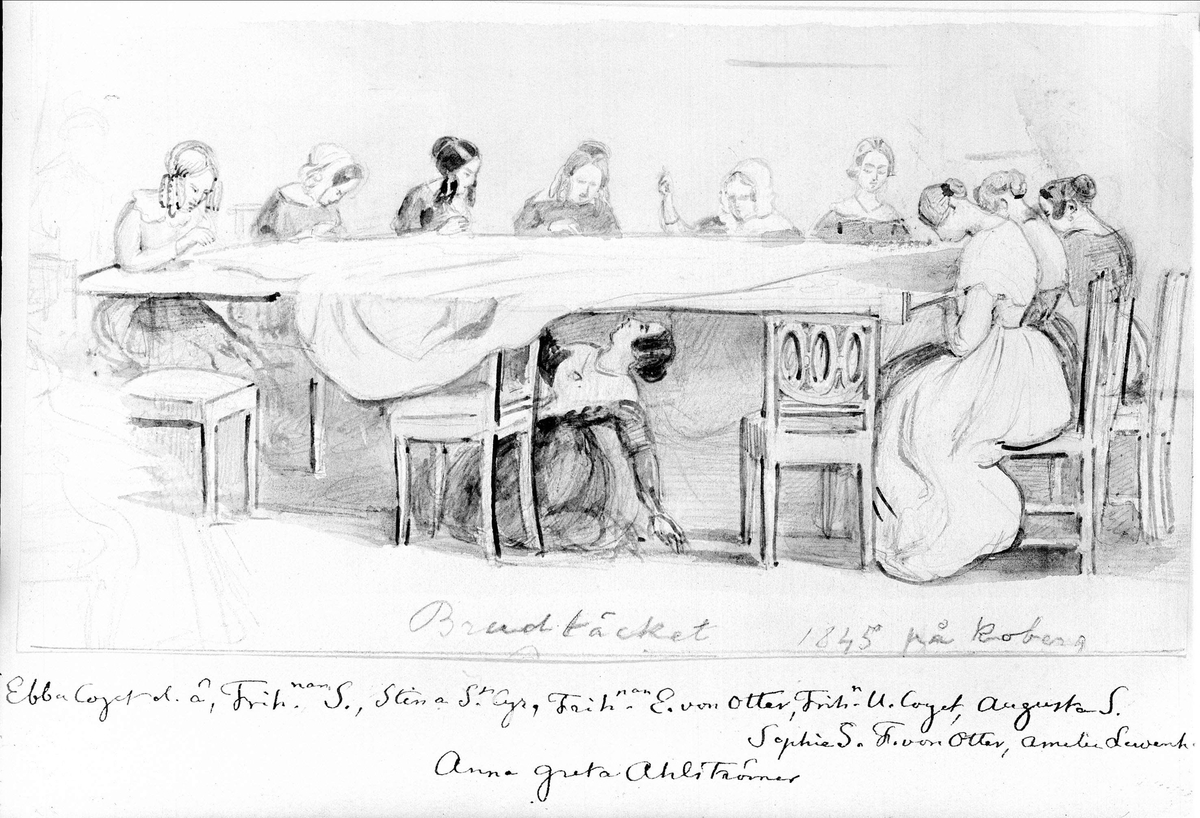 Brudtäcket 1845 på Koberg
Ebba Coyet d. ä, Frih.nan S., Stina S:t Cyr, Frih.nan E. von Otter, Frih.n U. Coyet, Augusta S.
Sophie S. F. von Otter, Amelie Lewenh.
Anna Greta Ahlströmer